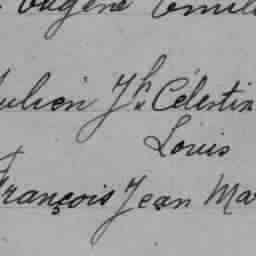 Eugène Emile
Julien Jh Célestin
Louis
François Jean Mar